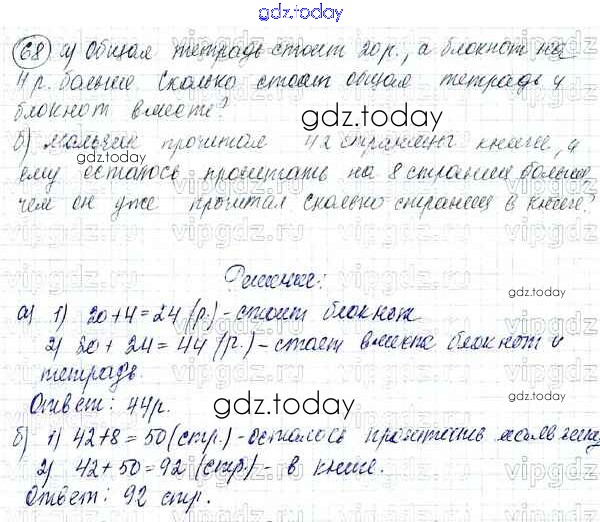 gdz.today
68 а) Общая тетрадь стоит 20 р., а блокнот на
4 р. больше. Сколько стоят общая тетрадь и
блокнот вместе?
gdz.today
б) Мальчик прочитал 42 страницы книги, и
gdz.today
ему осталось прочитать на 8 страниц больше,
чем он уже прочитал Сколько страниц в книге?
vipgdz.ru
Решение:
gdz.today
а) 1) 20+4=24 (р.) - стоит блокнот
2) 20+24=44 (р.) - стоят вместе блокнот и
тетрадь.
gdz.today
Ответ: 44р.
б) 1) 42+8=50 (стр.) - осталось прочитать
2) 42+50=92 (стр.) - в книге.
gdz.today
Ответ: 92 стр.